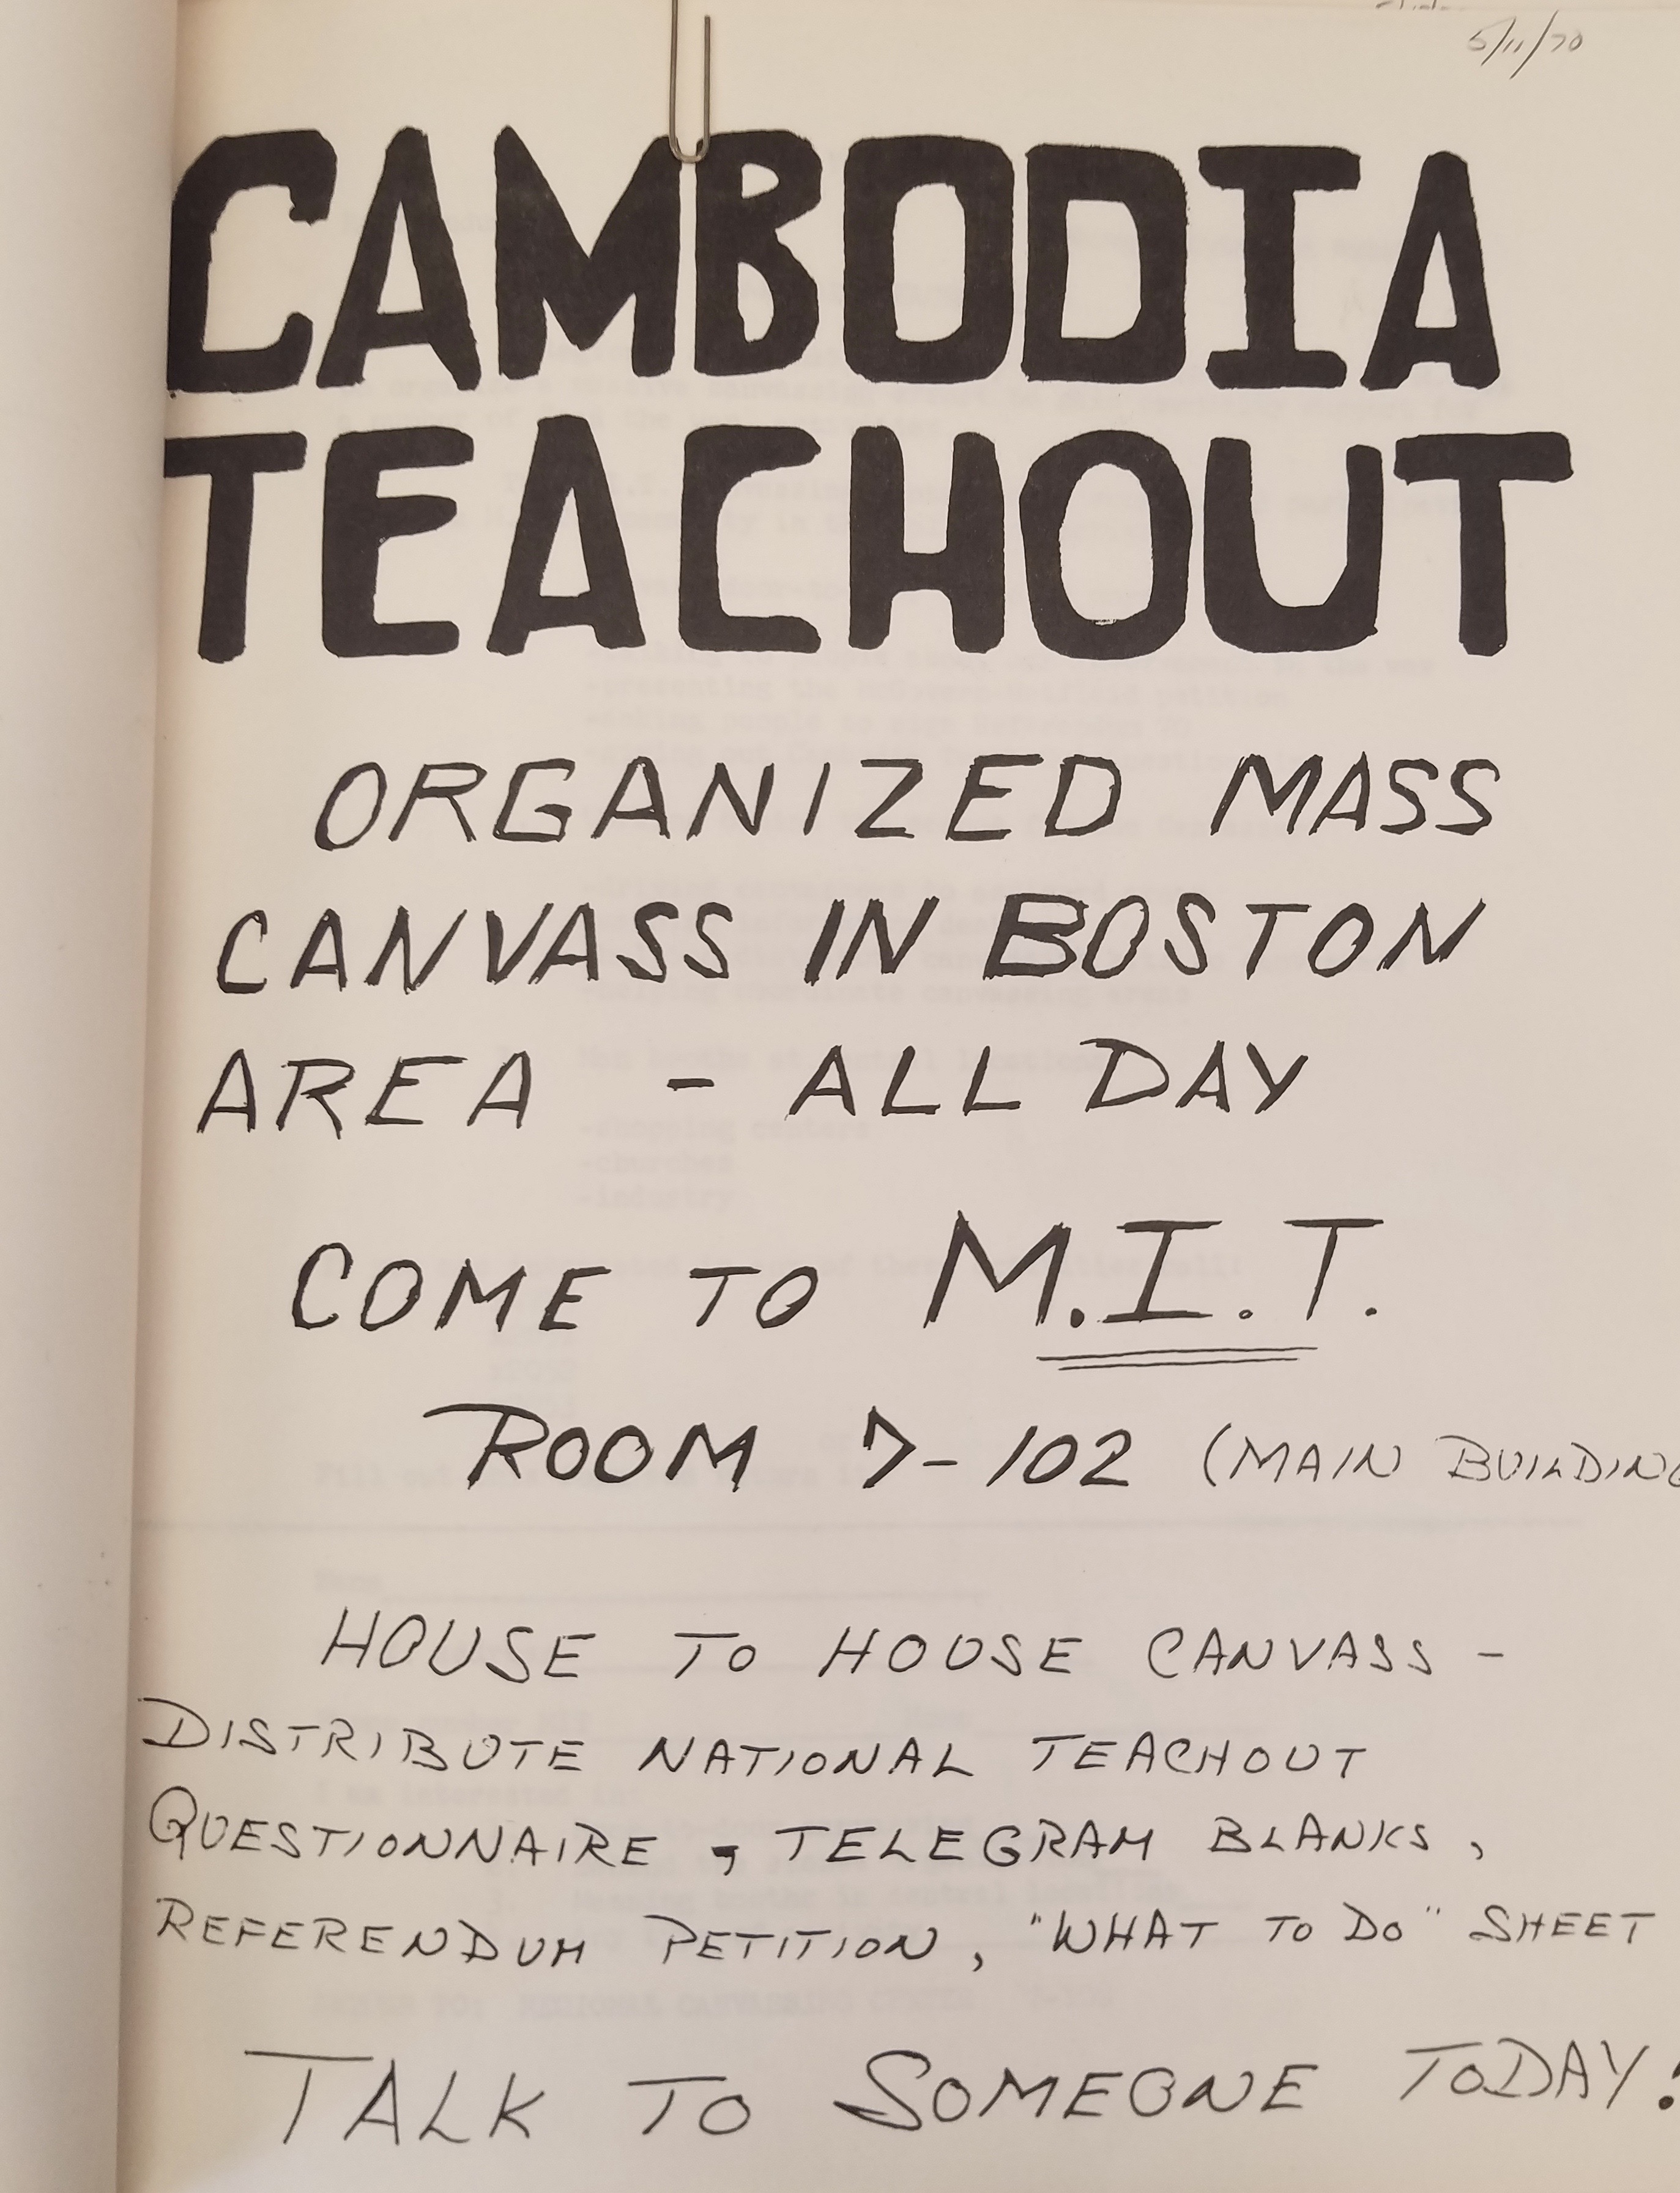 5/11/70
CAMBODIA
TEACHOUT
ORGANIZED MASS
CANVASS IN BOSTON
AREA - ALL DAY
COME TO M.I.T.
ROOM 7-102 (MAIN BUILDING
HOUSE TO HOUSE CANVASS -
DISTRIBUTE NATIONAL TEACHOUT
QUESTIONNAIRE, TELEGRAM BLANKS,
REFERENDUM PETITION, "WHAT TO DO" SHEET
TALK TO SOMEONE TODAY!